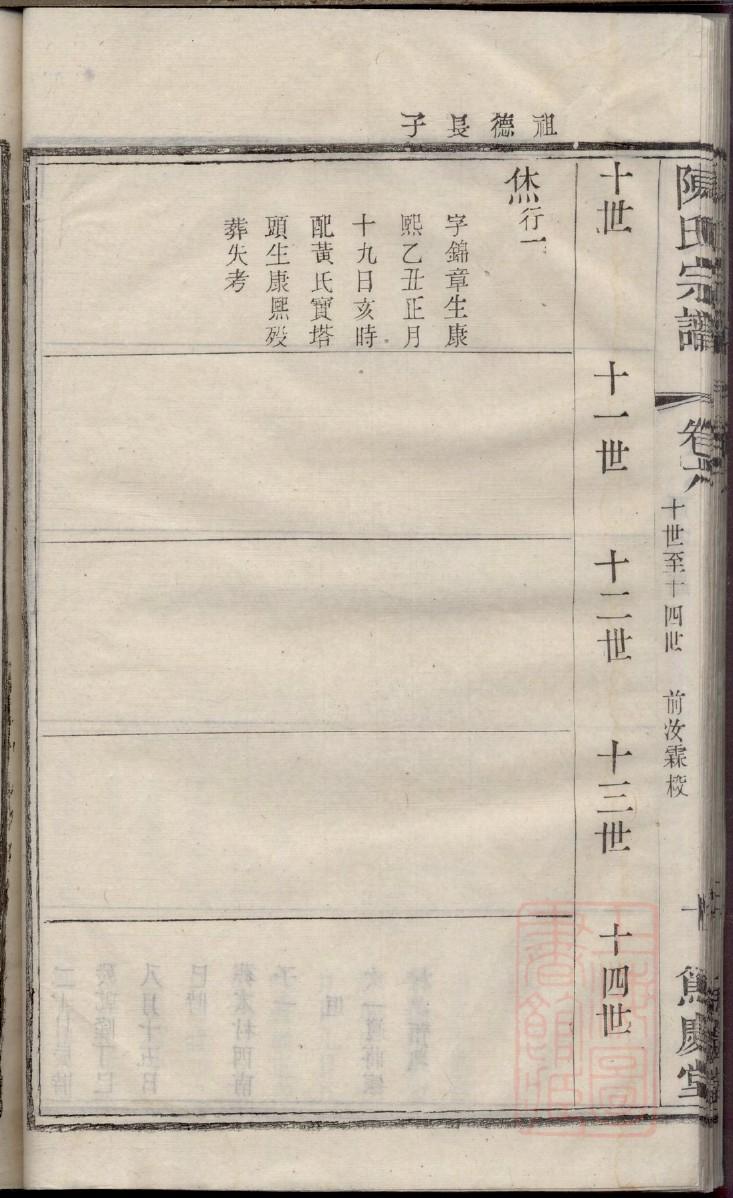 陳氏宗譜
卷六
十世至十四世
前汝霖校
篤慶堂
十世
十一世
十二世
十三世
十四世
祖德長子
烋行一
字錦章生康
熙乙丑正月
十九日亥時
配黃氏寶塔
頭生康熙歿
葬失考